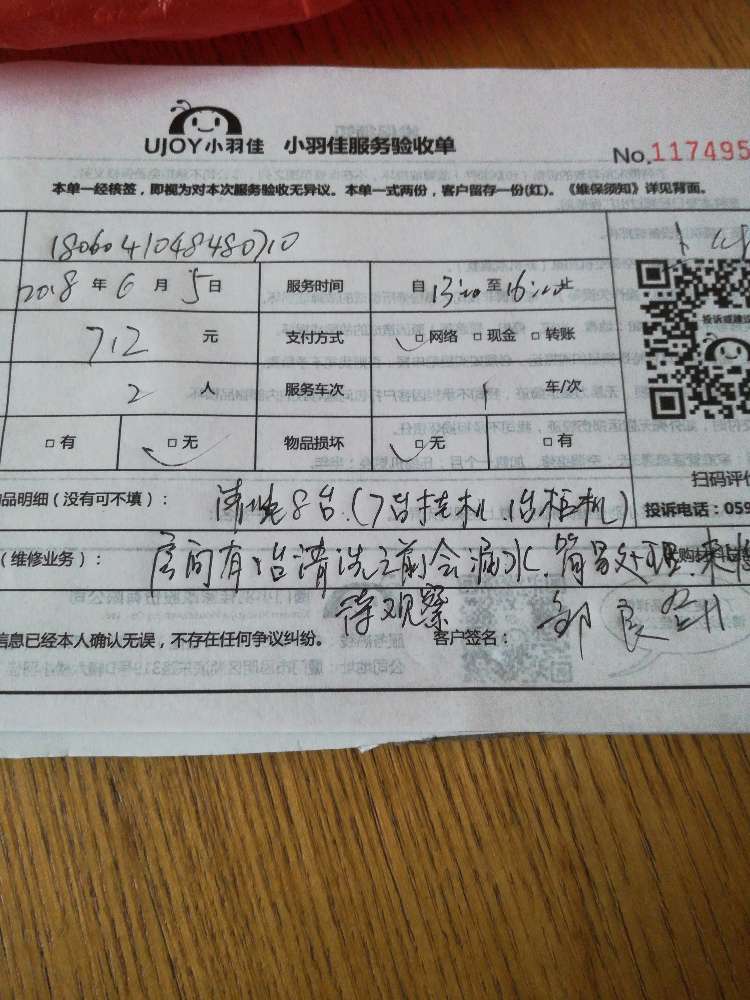 UJOY小羽佳 小羽佳服务验收单
No.117495
本单一经核签，即视为对本次服务验收无异议。本单一式两份，客户留存一份(红)。《维保须知》详见背面。
180604104848070
2018年6月5日 服务时间 自13:00至16:00止
712元 支付方式 □网络 □现金 □转账
投诉或建议
2人 服务车次 1车/次
□有 □无 物品损坏 □无 □有
扫码评价
品明细（没有可不填）： 清洗8台.(7台挂机.1台柜机)
投诉电话：059
（维修业务）： 房间有1台清洗之前会漏水.简易处理.
待观察
信息已经本人确认无误，不存在任何争议纠纷。 客户签名：